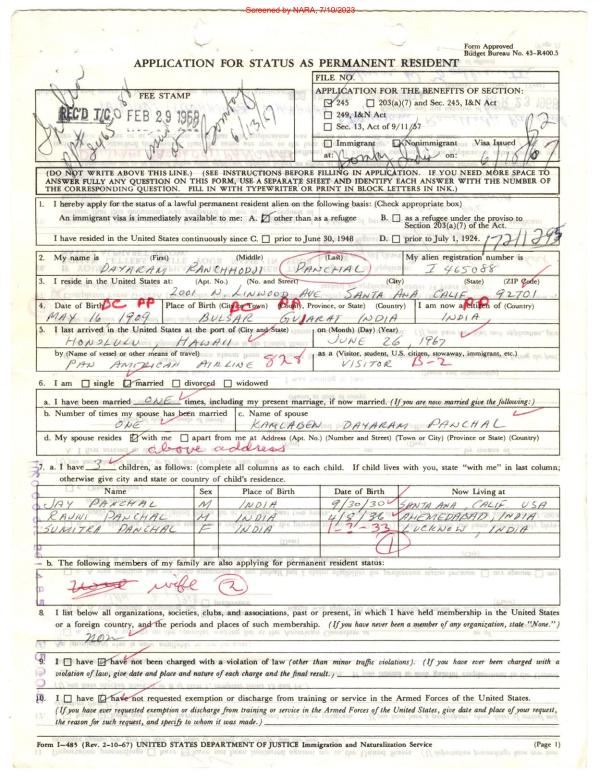 Screened by NARA, 7/10/2023
Form Approved
Budget Bureau No. 43-R400.5
APPLICATION FOR STATUS AS PERMANENT RESIDENT
FEE STAMP
REC'D T/C FEB 29 1968
Bombay
6/13/67
FILE NO.
APPLICATION FOR THE BENEFITS OF SECTION:
☑ 245 ☐ 203(a)(7) and Sec. 245, I&N Act
☐ 249, I&N Act
☐ Sec. 13, Act of 9/11/57
B2
☐ Immigrant ☑ Nonimmigrant Visa Issued
at: Bombay India on: 6/13/67
(DO NOT WRITE ABOVE THIS LINE.) (SEE INSTRUCTIONS BEFORE FILLING IN APPLICATION. IF YOU NEED MORE SPACE TO
ANSWER FULLY ANY QUESTION ON THIS FORM, USE A SEPARATE SHEET AND IDENTIFY EACH ANSWER WITH THE NUMBER OF
THE CORRESPONDING QUESTION. FILL IN WITH TYPEWRITER OR PRINT IN BLOCK LETTERS IN INK.)
1. I hereby apply for the status of a lawful permanent resident alien on the following basis: (Check appropriate box)
An immigrant visa is immediately available to me: A. ☑ other than as a refugee B. ☐ as a refugee under the proviso to
Section 203(a)(7) of the Act.
I have resided in the United States continuously since C. ☐ prior to June 30, 1948 D. ☐ prior to July 1, 1924.
17211295
2. My name is (First) (Middle) (Last) My alien registration number is
DAYARAM RANCHHODJI PANCHAL I 465088
3. I reside in the United States at: (Apt. No.) (No. and Street) (City) (State) (ZIP Code)
2001 N. LINWOOD AVE. SANTA ANA CALIF 92701
4. Date of Birth BC PP Place of Birth (City or Town) BC (County, Province, or State) (Country) I am now a citizen of (Country) PP
MAY 16 1909 BULSAR GUJARAT INDIA INDIA
5. I last arrived in the United States at the port of (City and State) on (Month) (Day) (Year)
HONOLULU, HAWAII JUNE 26, 1967
by (Name of vessel or other means of travel) as a (Visitor, student, U.S. citizen, stowaway, immigrant, etc.)
PAN AMERICAN AIRLINE 828 VISITOR B-2
6. I am ☐ single ☑ married ☐ divorced ☐ widowed
a. I have been married ONE times, including my present marriage, if now married. (If you are now married give the following:)
b. Number of times my spouse has been married c. Name of spouse
ONE KAMLABEN DAYARAM PANCHAL
d. My spouse resides ☑ with me ☐ apart from me at Address (Apt. No.) (Number and Street) (Town or City) (Province or State) (Country)
above address
7. a. I have 3 children, as follows: (complete all columns as to each child. If child lives with you, state "with me" in last column;
otherwise give city and state or country of child's residence.
Name Sex Place of Birth Date of Birth Now Living at
JAY PANCHAL M INDIA 9/30/30 SANTA ANA, CALIF USA
RAJNI PANCHAL M INDIA 4/8/36 AHEMEDABAD, INDIA
SUMITRA PANCHAL F INDIA 1-2-33 LUCKNOW, INDIA
1
b. The following members of my family are also applying for permanent resident status:
None wife 2
8. I list below all organizations, societies, clubs, and associations, past or present, in which I have held membership in the United States
or a foreign country, and the periods and places of such membership. (If you have never been a member of any organization, state "None.")
NON
9. I ☐ have ☑ have not been charged with a violation of law (other than minor traffic violations). (If you have ever been charged with a
violation of law, give date and place and nature of each charge and the final result.)
10. I ☐ have ☑ have not requested exemption or discharge from training or service in the Armed Forces of the United States.
(If you have ever requested exemption or discharge from training or service in the Armed Forces of the United States, give date and place of your request,
the reason for such request, and specify to whom it was made.)
Form I-485 (Rev. 2-10-67) UNITED STATES DEPARTMENT OF JUSTICE Immigration and Naturalization Service (Page 1)